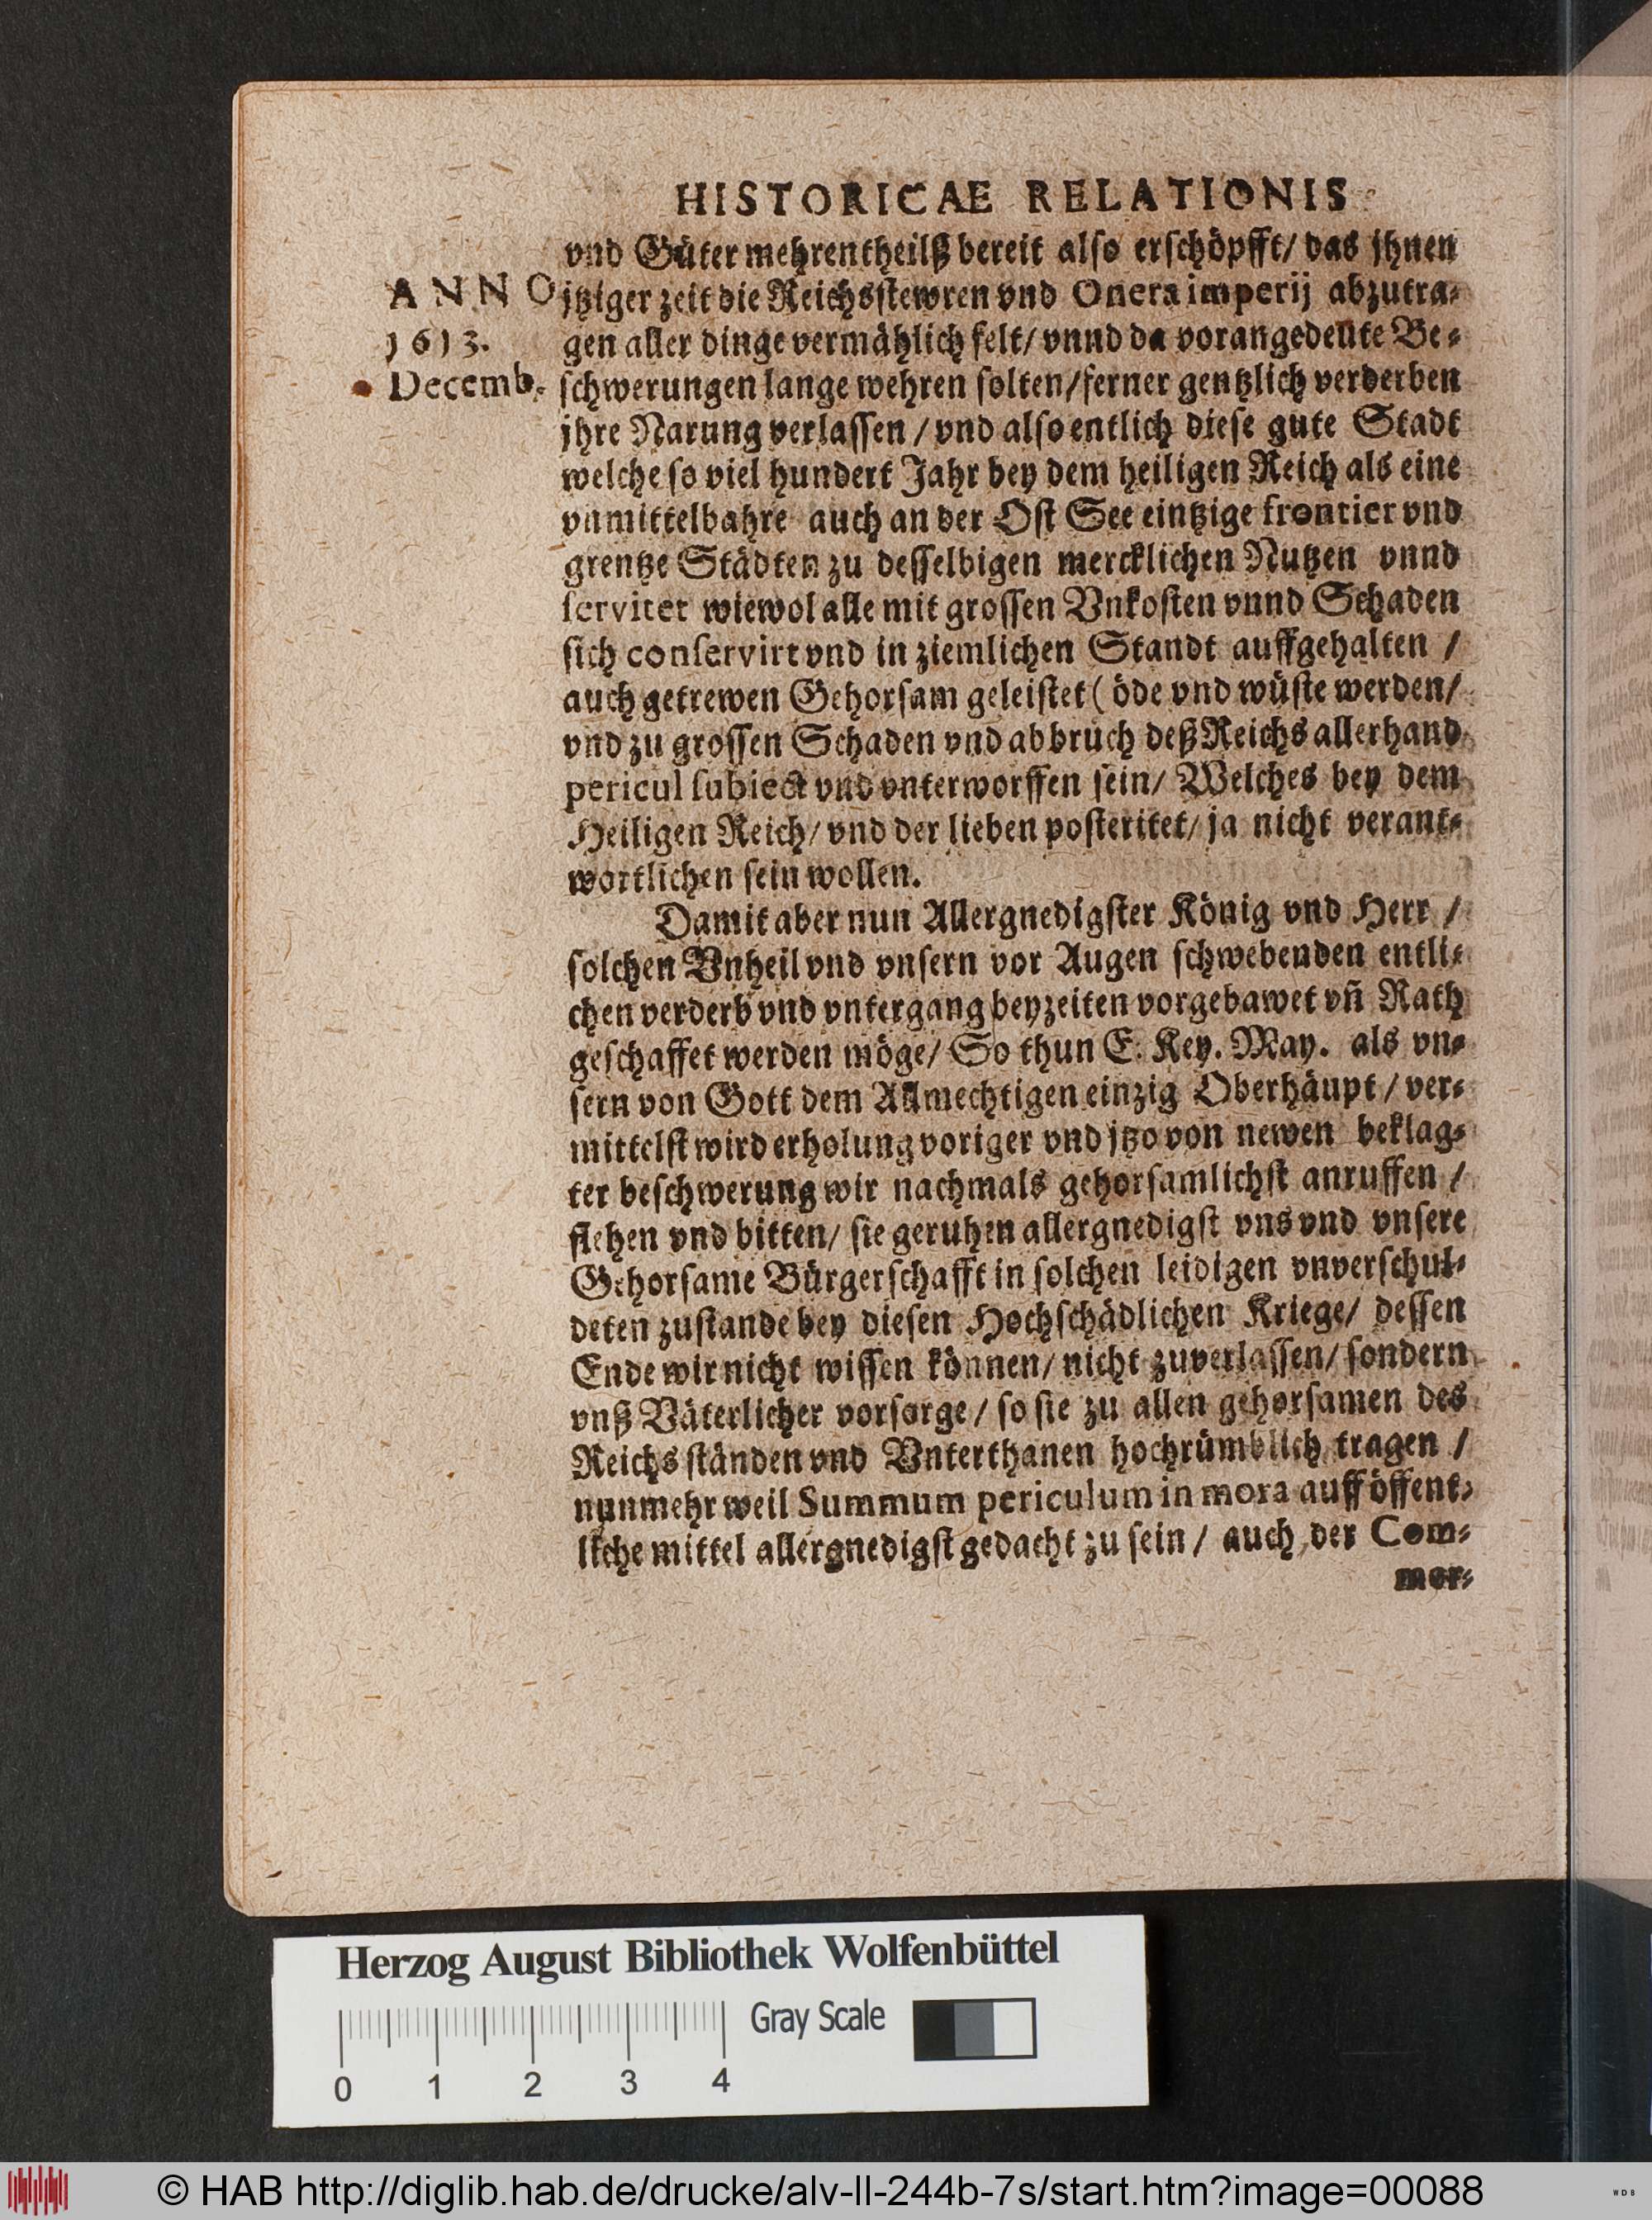 HISTORICAE RELATIONIS
vnd Güter mehrentheilß bereit also erschöpfft/ das jhnen
ANNO
jtziger zeit die Reichsstewren vnd Onera imperij abzutra-
1613.
gen aller dinge vermählich felt/ vnnd da vorangedeute Be-
Decemb.
schwerungen lange wehren solten/ferner gentzlich verderben
jhre Narung verlassen / vnd also entlich diese gute Stadt
welche so viel hundert Jahr bey dem heiligen Reich als eine
vnmittelbahre auch an der Ost See eintzige frontier vnd
grentze Städten zu desselbigen mercklichen Nutzen vnnd
servitet wiewol alle mit grossen Vnkosten vnnd Schaden
sich conservirt vnd in ziemlichen Standt auffgehalten /
auch getrewen Gehorsam geleistet ( öde vnd wüste werden/
vnd zu grossen Schaden vnd abbruch deß Reichs allerhand
pericul subiect vnd vnterworffen sein/ Welches bey dem
Heiligen Reich/ vnd der lieben posteritet/ ja nicht verant-
wortlichen sein wollen.
Damit aber nun Allergnedigster König vnd Herr /
solchen Vnheil vnd vnsern vor Augen schwebenden entli-
chen verderb vnd vntergang beyzeiten vorgebawet vñ Rath
geschaffet werden möge/ So thun E. Key. May. als vn-
sern von Gott dem Allmechtigen einzig Oberhäupt / ver-
mittelst wird erholung voriger vnd jtzo von newen beklag-
ter beschwerung wir nachmals gehorsamlichst anruffen /
flehen vnd bitten/ sie geruhen allergnedigst vns vnd vnsere
Gehorsame Bürgerschafft in solchen leidigen vnverschul-
deten zustande bey diesen Hochschädlichen Kriege/ dessen
Ende wir nicht wissen können/ nicht zuverlassen/ sondern
vnß Väterlicher vorsorge / so sie zu allen gehorsamen des
Reichs ständen vnd Vnterthanen hochrümblich tragen /
nunmehr weil Summum periculum in mora auff öffent-
liche mittel allergnedigst gedacht zu sein / auch der Com-
mer-
Herzog August Bibliothek Wolfenbüttel
Gray Scale
0 1 2 3 4
© HAB http://diglib.hab.de/drucke/alv-ll-244b-7s/start.htm?image=00088
WDB